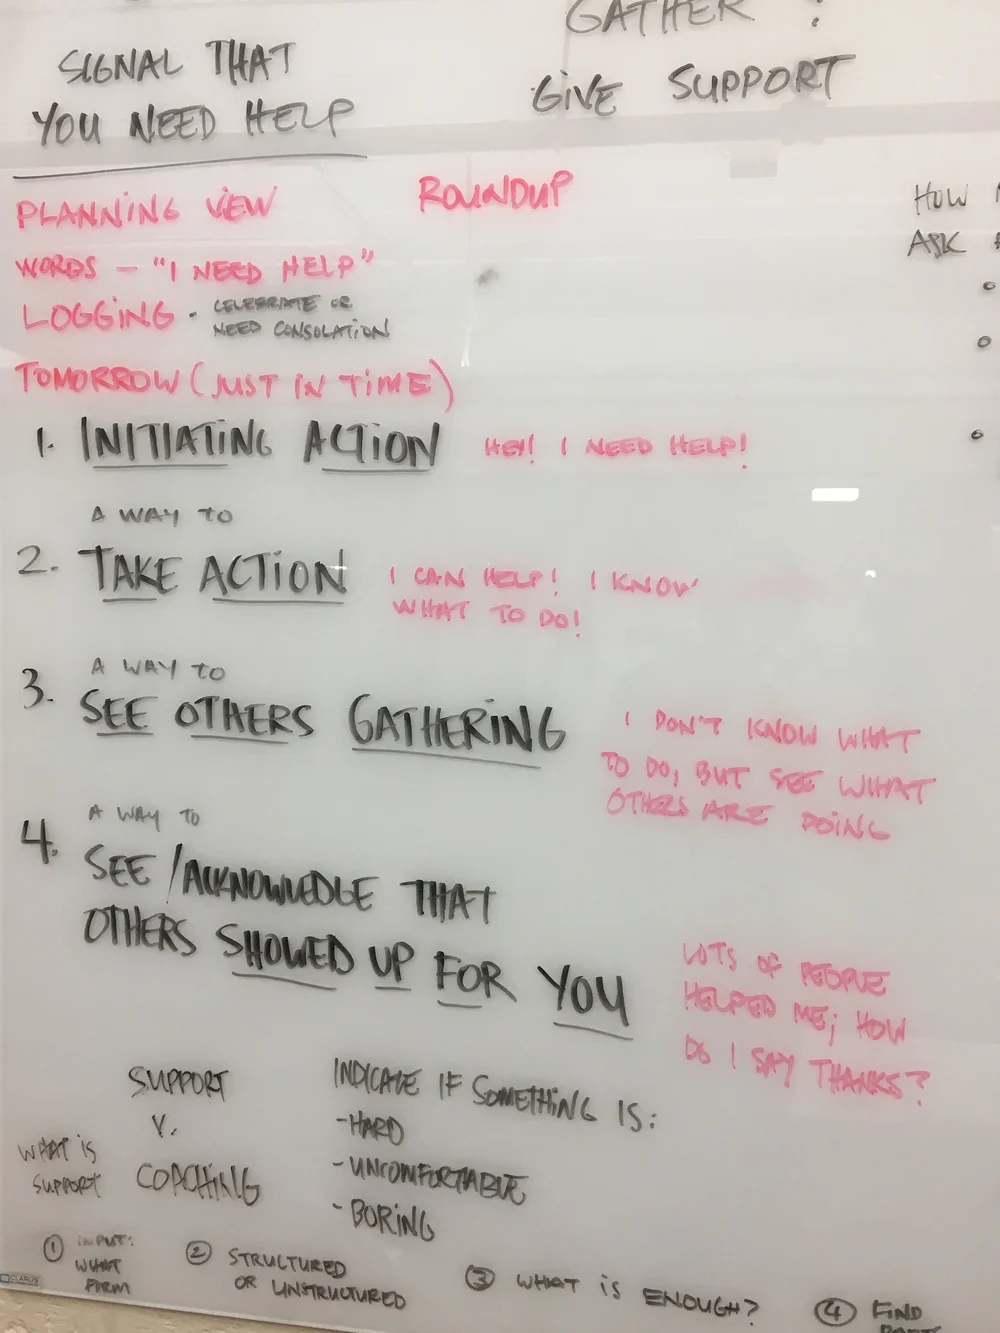 SIGNAL THAT
YOU NEED HELP
GATHER ?
GIVE SUPPORT
PLANNING VIEW
WORDS - "I NEED HELP"
LOGGING · CELEBRATE OR
NEED CONSOLATION
TOMORROW (JUST IN TIME)
ROUNDUP
HOW
ASK
1. INITIATING ACTION
HEY! I NEED HELP!
A WAY TO
2. TAKE ACTION
I CAN HELP! I KNOW
WHAT TO DO!
A WAY TO
3. SEE OTHERS GATHERING
I DON'T KNOW WHAT
TO DO, BUT SEE WHAT
OTHERS ARE DOING
A WAY TO
4. SEE/ACKNOWLEDGE THAT
OTHERS SHOWED UP FOR YOU
LOTS OF PEOPLE
HELPED ME; HOW
DO I SAY THANKS?
SUPPORT
V.
COACHING
WHAT IS
SUPPORT
INDICATE IF SOMETHING IS:
- HARD
- UNCOMFORTABLE
- BORING
① INPUT:
WHAT
FORM
② STRUCTURED
OR UNSTRUCTURED
③ WHAT IS ENOUGH?
④ FIND
CLARUS